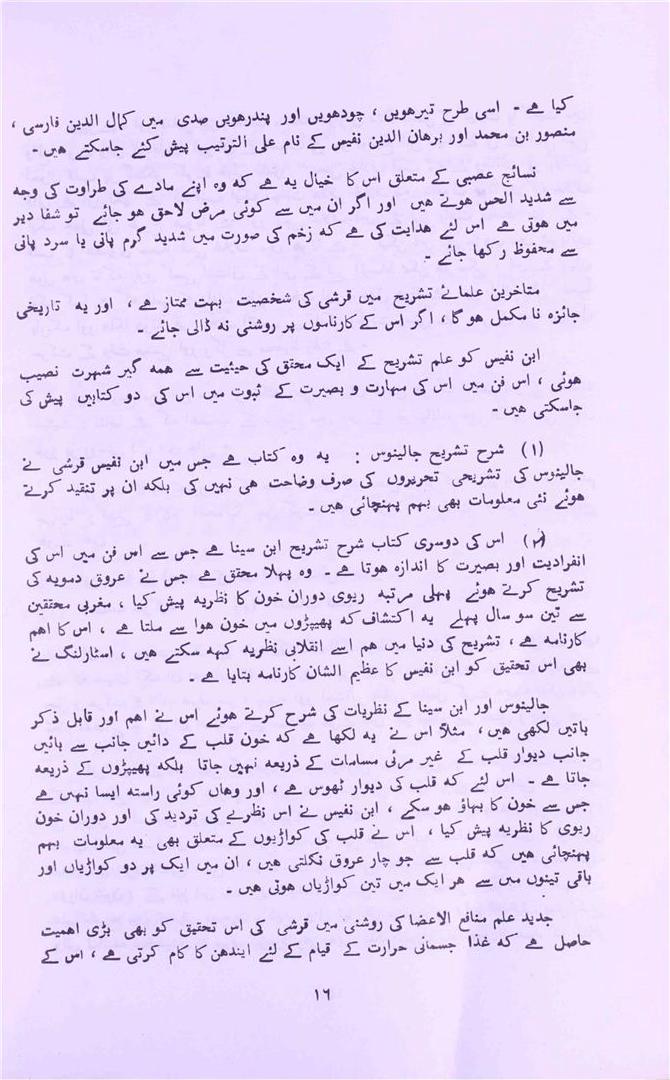 کیا ہے - اسی طرح تیرھویں ، چودھویں اور پندرھویں صدی میں کمال الدین فارسی ،
منصور بن محمد اور برھان الدین نفیس کے نام علی الترتیب پیش کئے جاسکتے ھیں -
نسائج عصبی کے متعلق اس کا خیال یہ ہے کہ وہ اپنے مادے کی طراوت کی وجہ
سے شدید الحس ھوتے ھیں اور اگر ان میں سے کوئی مرض لاحق ھو جائے تو شفا دیر
میں ھوتی ہے اس لئے ھدایت کی ہے کہ زخم کی صورت میں شدید گرم پانی یا سرد پانی
سے محفوظ رکھا جائے -
متاخرین علمائے تشریح میں قرشی کی شخصیت بہت ممتاز ہے ، اور یہ تاریخی
جائزہ نا مکمل ھو گا ، اگر اس کے کارناموں پر روشنی نہ ڈالی جائے
ابن نفیس کو علم تشریح کے ایک محقق کی حیثیت سے ھمہ گیر شہرت نصیب
ھوئی ، اس فن میں اس کی مہارت و بصیرت کے ثبوت میں اس کی دو کتابیں پیش کی
جاسکتی ھیں -
(۱) شرح تشریح جالینوس : یہ وہ کتاب ہے جس میں ابن نفیس قرشی نے
جالینوس کی تشریحی تحریروں کی صرف وضاحت ھی نہیں کی بلکہ ان پر تنقید کرتے
ھوئے نئی معلومات بھی بہم پہنچائی ھیں -
(۲) اس کی دوسری کتاب شرح تشریح ابن سینا ہے جس سے اس فن میں اس کی
انفرادیت اور بصیرت کا اندازہ ھوتا ہے - وہ پہلا محقق ہے جس نے عروق دمویہ کی
تشریح کرتے ھوئے پہلی مرتبہ ریوی دوران خون کا نظریہ پیش کیا ، مغربی محققین
سے تین سو سال پہلے یہ اکتشاف کہ پھیپڑوں میں خون ھوا سے ملتا ہے ، اس کا اھم
کارنامہ ہے ، تشریح کی دنیا میں ھم اسے انقلابی نظریہ کہہ سکتے ھیں ، اسٹارلنگ نے
بھی اس تحقیق کو ابن نفیس کا عظیم الشان کارنامہ بتایا ہے -
جالینوس اور ابن سینا کے نظریات کی شرح کرتے ھوئے اس نے اھم اور قابل ذکر
باتیں لکھی ھیں ، مثلاً اس نے یہ لکھا ہے کہ خون قلب کے دائیں جانب سے بائیں
جانب دیوار قلب کے غیر مرئی مسامات کے ذریعہ نہیں جاتا بلکہ پھیپڑوں کے ذریعہ
جاتا ہے - اس لئے کہ قلب کی دیوار ٹھوس ہے ، اور وھاں کوئی راستہ ایسا نہیں ہے
جس سے خون کا بہاؤ ھو سکے ، ابن نفیس نے اس نظرے کی تردید کی اور دوران خون
ریوی کا نظریہ پیش کیا ، اس نے قلب کی کواڑیوں کے متعلق بھی یہ معلومات بہم
پہنچائی ھیں کہ قلب سے جو چار عروق نکلتی ھیں ، ان میں ایک پر دو کواڑیاں اور
باقی تینوں میں سے ھر ایک میں تین کواڑیاں ھوتی ھیں -
جدید علم منافع الاعضا کی روشنی میں قرشی کی اس تحقیق کو بھی بڑی اھمیت
حاصل ہے کہ غذا جسمانی حرارت کے قیام کے لئے ایندھن کا کام کرتی ہے ، اس کے
۱۶